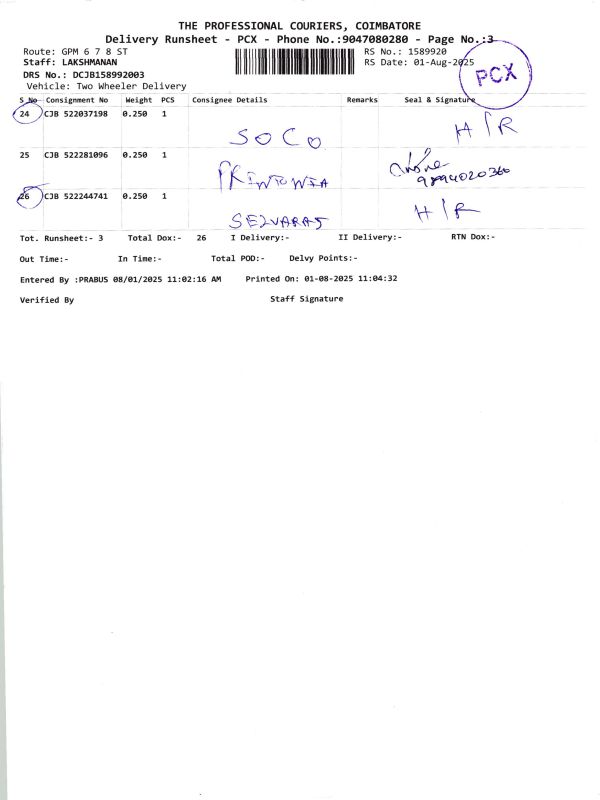 THE PROFESSIONAL COURIERS, COIMBATORE
Delivery Runsheet - PCX - Phone No.:9047080280 - Page No.:3
Route: GPM 6 7 8 ST RS No.: 1589920
Staff: LAKSHMANAN RS Date: 01-Aug-2025
PCX
DRS No.: DCJB158992003
Vehicle: Two Wheeler Delivery
S No Consignment No Weight PCS Consignee Details Remarks Seal & Signature
24 CJB 522037198 0.250 1 SOCO H/R
25 CJB 522281096 0.250 1 PRINTONIA
9894020360
26 CJB 522244741 0.250 1 SELVARAJ H/R
Tot. Runsheet:- 3 Total Dox:- 26 I Delivery:- II Delivery:- RTN Dox:-
Out Time:- In Time:- Total POD:- Delvy Points:-
Entered By :PRABUS 08/01/2025 11:02:16 AM Printed On: 01-08-2025 11:04:32
Verified By Staff Signature